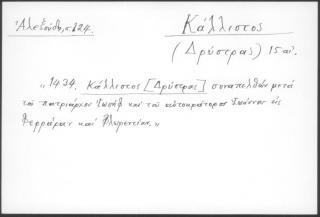 Ἀλεξούδη, σ. 124.
Κάλλιστος
(Δρύστρας) 15 αἰ.
"1434. Κάλλιστος [Δρύστρας] συναπελθὼν μετὰ
τοῦ πατριάρχου Ἰωσὴφ καὶ τοῦ αὐτοκράτορος Ἰωάννου εἰς
Φερράραν καὶ Φλωρεντίαν."